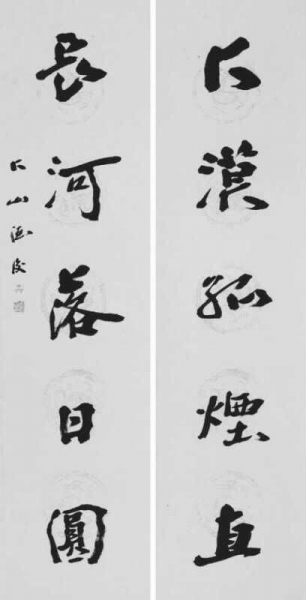 大漠孤煙直
長河落日圓
大山